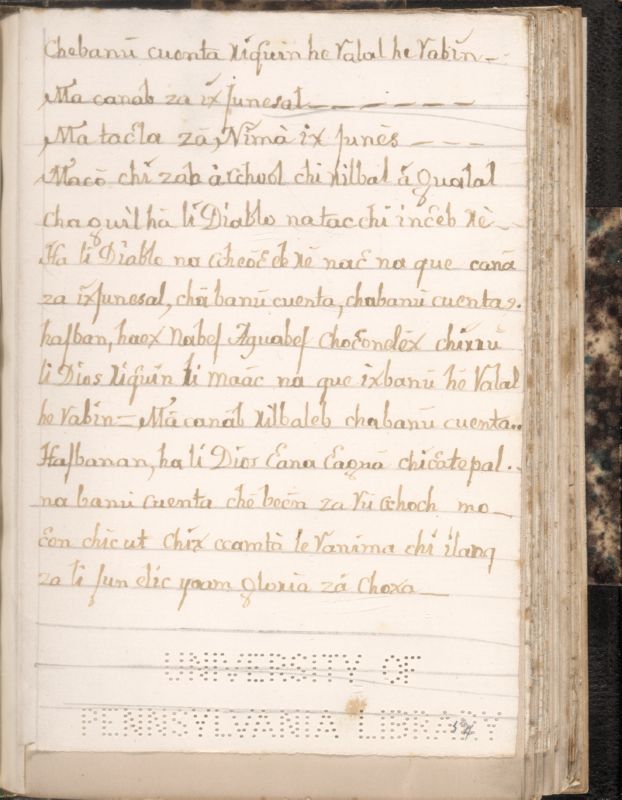 Chebanū cuenta riquin he Valal he Vabin_
Ma canab za ix Junesal_ _ _ _ _ _
Ma tacla zā, Nimà ix Junès _ _ _
Macō chi zab à rchool chi rilbal á Qualal
Cha quil hà li Diablo natacchi inceb rè_
Ha li Diablo na ccheoc ek rē nac na que canà
za ixJunesal, chā banū cuenta, chabanū cuenta.
hasban, haex Nabes Aguabes Choconelēx chiruū
li Dios riquin li maàc na que ixbanū hē Valal
he Vabin_ Mā canàb rilbaleb chabanū cuenta..
Hasbanan, ha li Dios cana caguā chicate pal..
na banū cuenta chē becōn za Vū cchoch mo_
con chic ut Chix ccamtà le Vanima chi ilanq
za li Jun elic yaam gloria zá Choxa_
UNIVERSITY OF
PENNSYLVANIA LIBRARY